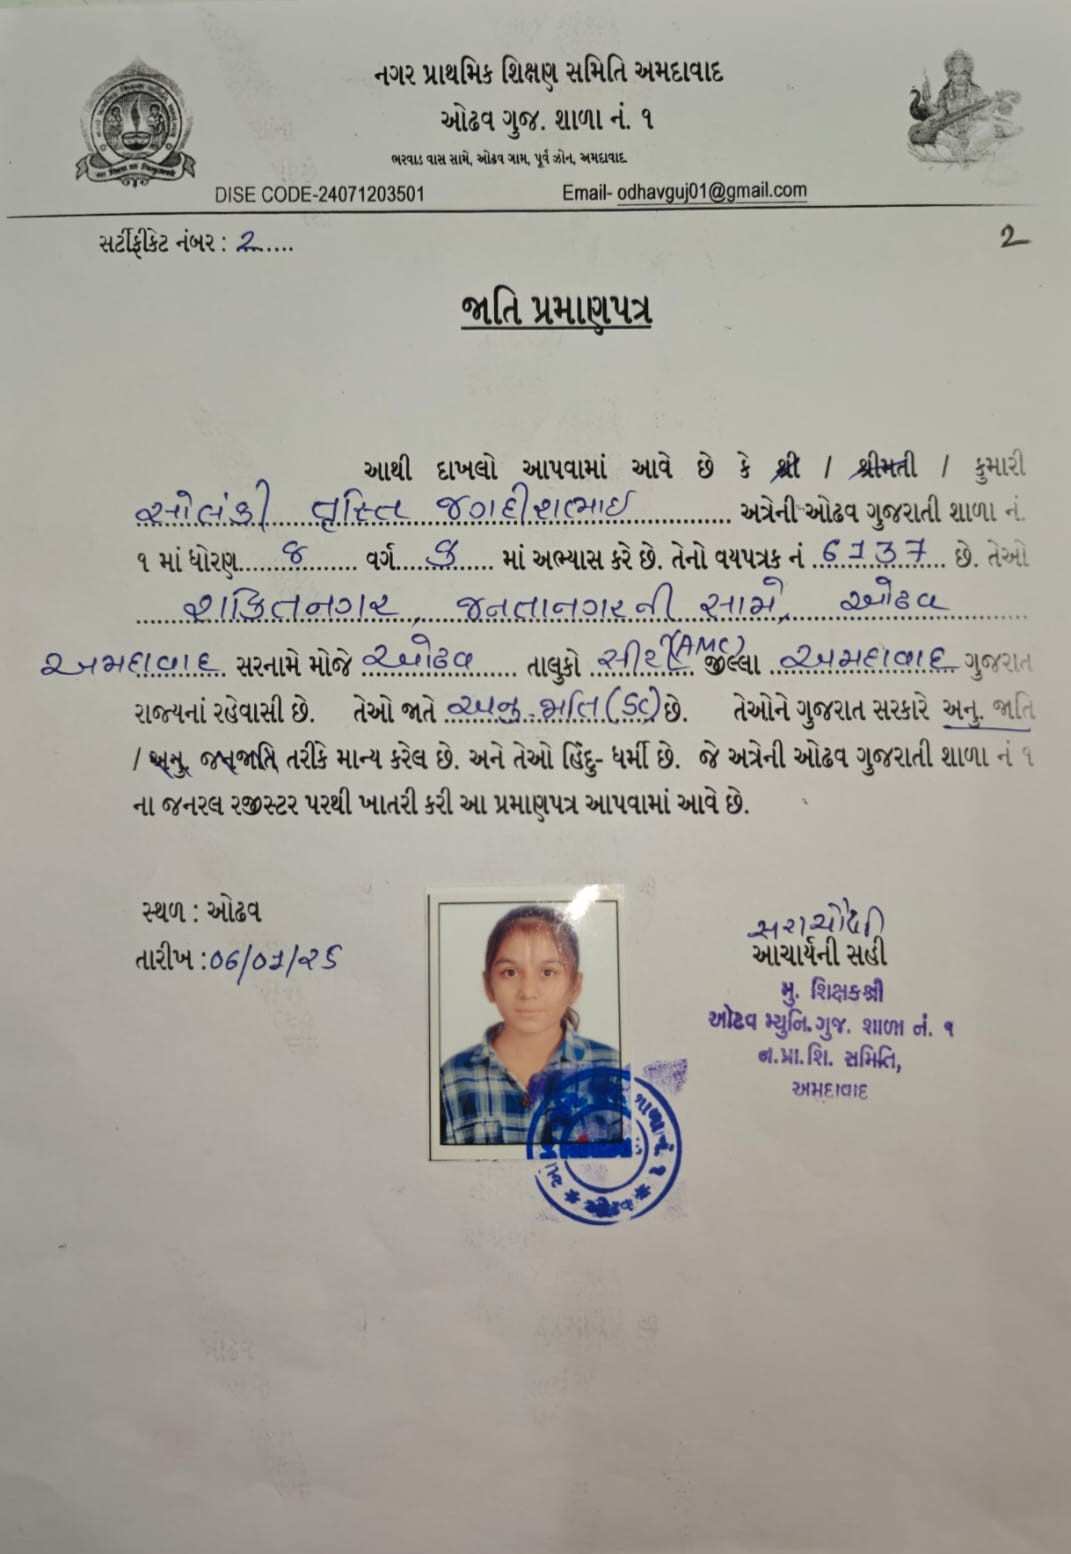 નગર પ્રાથમિક શિક્ષણ સમિતિ અમદાવાદ
ઓઢવ ગુજ. શાળા નં. ૧
ભરવાડ વાસ સામે, ઓઢવ ગામ, પૂર્વ ઝોન, અમદાવાદ
DISE CODE-24071203501 Email- odhavguj01@gmail.com
સર્ટીફીકેટ નંબર : 2.....
2
જાતિ પ્રમાણપત્ર
આથી દાખલો આપવામાં આવે છે કે શ્રી / શ્રીમતી / કુમારી
સોલંકી તૃપ્તિ જગદીશભાઇ અત્રેની ઓઢવ ગુજરાતી શાળા નં.
૧ માં ધોરણ 8 વર્ગ ક માં અભ્યાસ કરે છે. તેનો વયપત્રક નં 6137 છે. તેઓ
શક્તિનગર, જનતાનગરની સામે, ઓઢવ
અમદાવાદ સરનામે મોજે ઓઢવ તાલુકો સીટી (AMC) જીલ્લા અમદાવાદ ગુજરાત
રાજ્યનાં રહેવાસી છે. તેઓ જાતે અનુ. જાતિ (SC) છે. તેઓને ગુજરાત સરકારે અનુ. જાતિ
/ અનુ. જનજાતિ તરીકે માન્ય કરેલ છે. અને તેઓ હિંદુ- ધર્મી છે. જે અત્રેની ઓઢવ ગુજરાતી શાળા નં ૧
ના જનરલ રજીસ્ટર પરથી ખાતરી કરી આ પ્રમાણપત્ર આપવામાં આવે છે.
સ્થળ : ઓઢવ
તારીખ : 06/01/26
આચાર્યની સહી
મુ. શિક્ષકશ્રી
ઓઢવ મ્યુનિ. ગુજ. શાળા નં. ૧
ન.પ્રા.શિ. સમિતિ,
અમદાવાદ